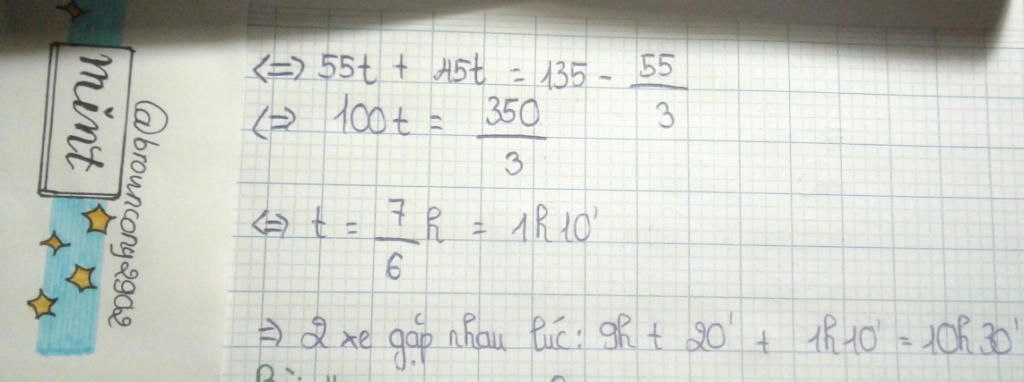 mint
@brouncony2902
<=> 55t + 45t = 135 - 55/3
<=> 100t = 350/3
<=> t = 7/6 h = 1h10'
=> 2 xe gặp nhau lúc: 9h + 20' + 1h10' = 10h30'